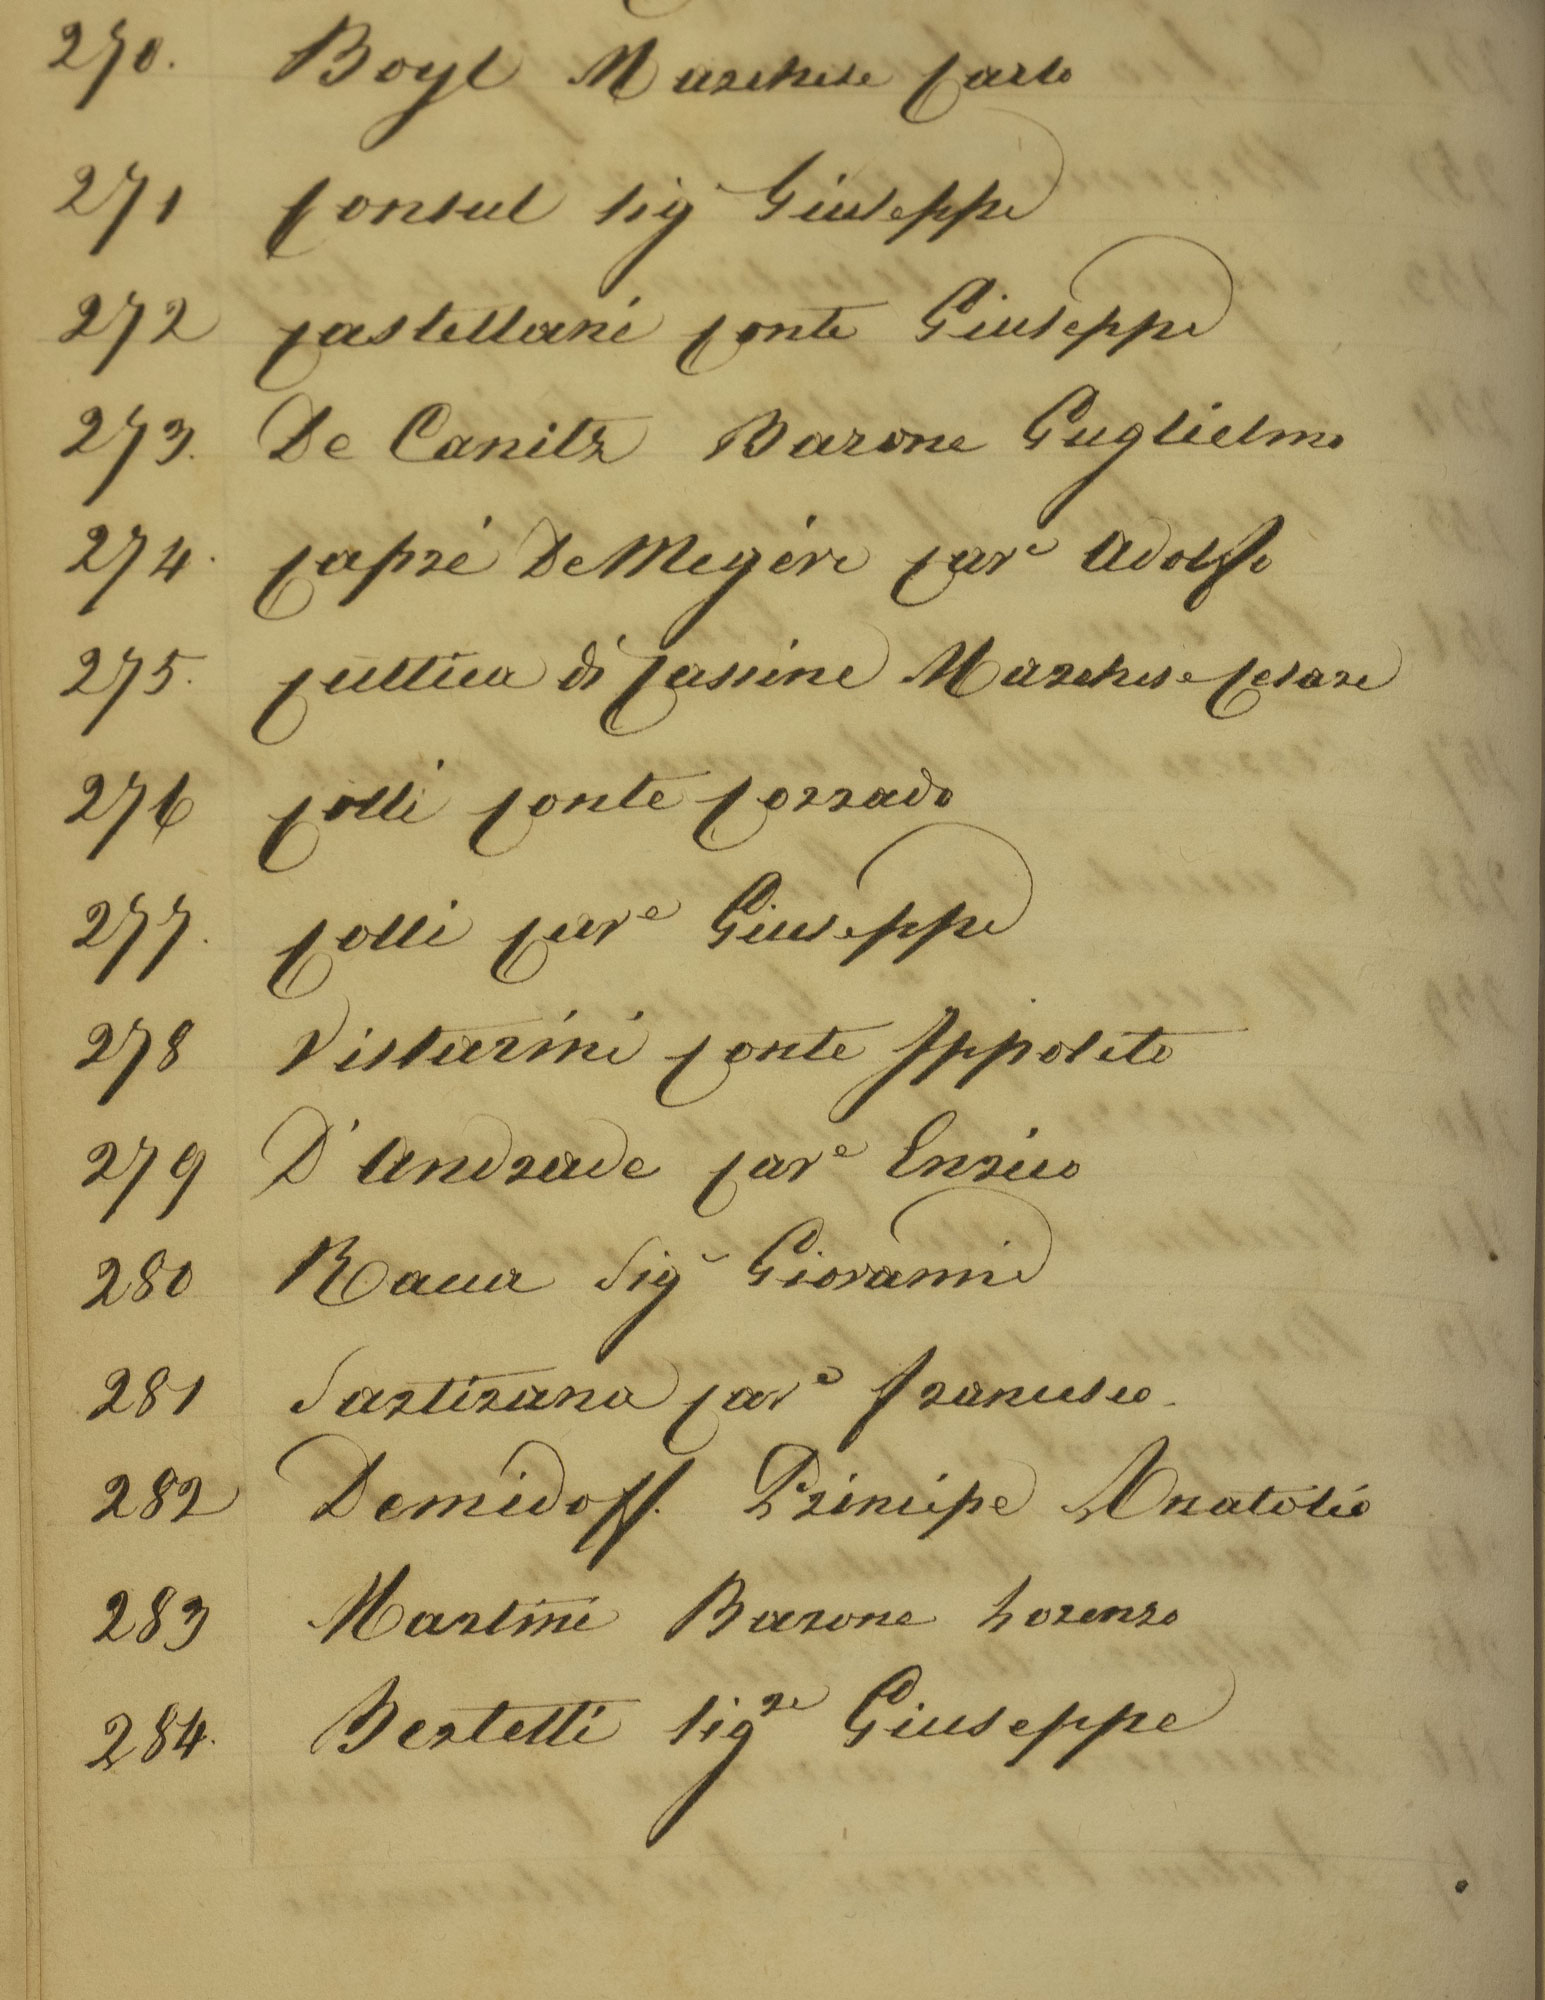 270. Boyl Marchese Carlo
271 Consul Sig.r Giuseppe
272 Castellani Conte Giuseppe
273. De Canitz Barone Guglielmo
274. Capré De Megéve Cav.e Adolfo
275. Cuttica di Cassine Marchese Cesare
276 Colli Conte Corrado
277. Colli Cav.e Giuseppe
278 Vistarini Conte Ippolito
279 D'Andrade Cav.e Enrico
280 Sig.r Giovanni
281 Sartirana Cav.e Francesco.
282 Demidoff. Principe Anatolio
283 Martini Barone Lorenzo
284. Bertelli Sig.re Giuseppe